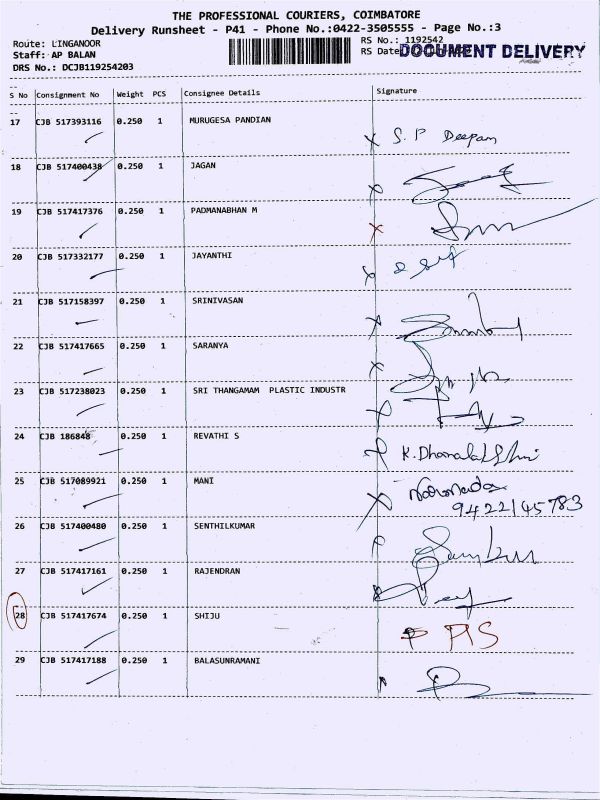 THE PROFESSIONAL COURIERS, COIMBATORE
Delivery Runsheet - P41 - Phone No.:0422-3505555 - Page No.:3
Route: LINGANOOR
RS No.: 1192542
Staff: AP BALAN
RS Date
DOCUMENT DELIVERY
DRS No.: DCJB119254203
S No Consignment No Weight PCS Consignee Details Signature
17 CJB 517393116 0.250 1 MURUGESA PANDIAN S. P Deepam
18 CJB 517400438 0.250 1 JAGAN
19 CJB 517417376 0.250 1 PADMANABHAN M
20 CJB 517332177 0.250 1 JAYANTHI
21 CJB 517158397 0.250 1 SRINIVASAN
22 CJB 517417665 0.250 1 SARANYA
23 CJB 517238023 0.250 1 SRI THANGAMAM PLASTIC INDUSTR
24 CJB 186848 0.250 1 REVATHI S
25 CJB 517089921 0.250 1 MANI
9422145783
26 CJB 517400480 0.250 1 SENTHILKUMAR
27 CJB 517417161 0.250 1 RAJENDRAN
28 CJB 517417674 0.250 1 SHIJU
29 CJB 517417188 0.250 1 BALASUNRAMANI